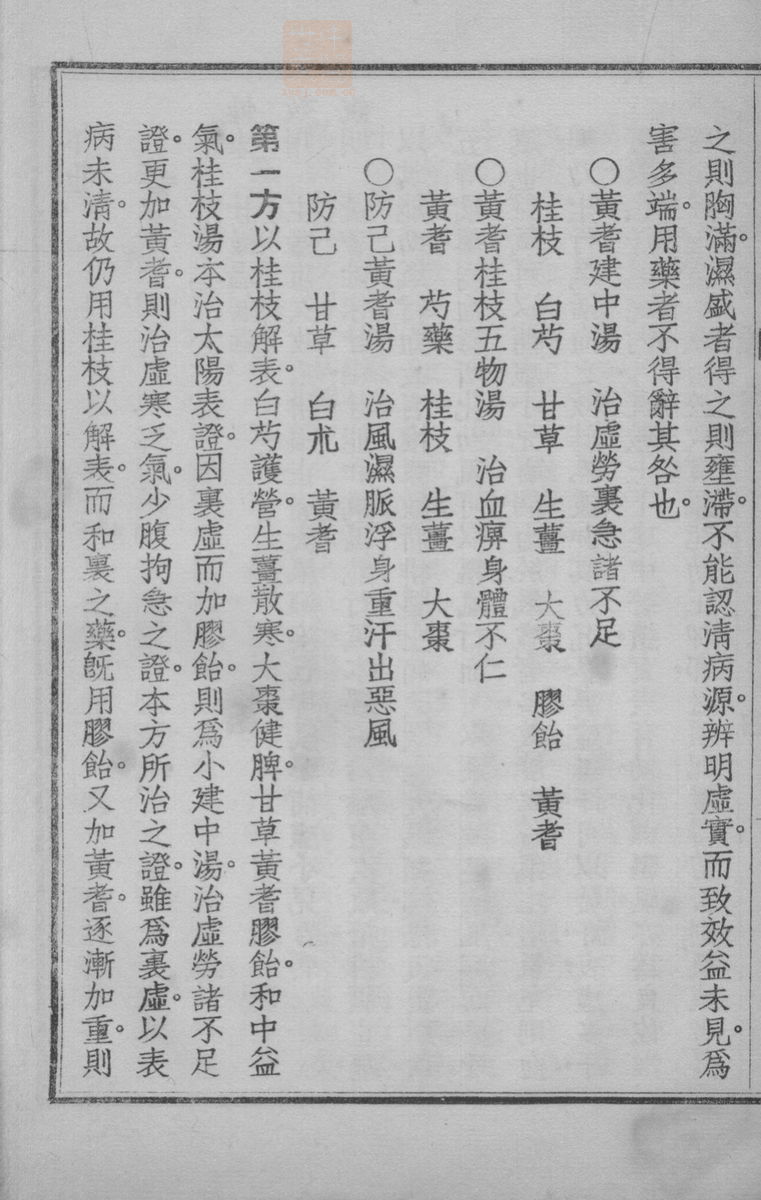 之則胸滿。濕盛者得之則壅滯。不能認清病源。辨明虛實。而致效益未見。爲
害多端。用藥者不得辭其咎也。
○黃耆建中湯　治虛勞裏急諸不足
桂枝　白芍　甘草　生薑　大棗　膠飴　黃耆
○黃耆桂枝五物湯　治血痹身體不仁
黃耆　芍藥　桂枝　生薑　大棗
○防己黃耆湯　治風濕脈浮身重汗出惡風
防己　甘草　白朮　黃耆
第一方以桂枝解表。白芍護營。生薑散寒。大棗健脾。甘草黃耆膠飴。和中益
氣。桂枝湯本治太陽表證。因裏虛而加膠飴。則爲小建中湯。治虛勞諸不足
證。更加黃耆。則治虛寒乏氣。少腹拘急之證。本方所治之證。雖爲裏虛。以表
病未清。故仍用桂枝以解表。而和裏之藥。旣用膠飴。又加黃耆。逐漸加重。則